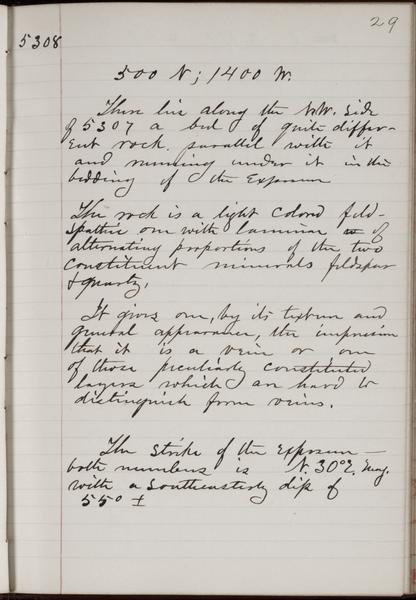 29
5308
500 N; 1400 W.
There lies along the NW. side
of 5307 a bed of quite differ-
ent rock parallel with it
and running under it in the
bedding of the Exposure
The rock is a light colored feld-
spathic one with laminae of
alternating proportions of the two
constituent minerals feldspar
& quartz,
It gives one, by its texture and
general appearance, the impression
that it is a vein or one
of those peculiarly constituted
layers which are hard to
distinguish from veins.
The strike of the Exposure —
both numbers is N. 30° E. mag.
with a Southeasterly dip of
55° ±